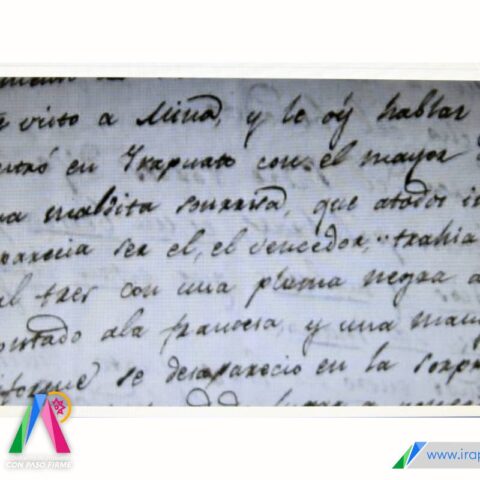 visto a Mina, y le oÿ hablar
entró en Yrapuato con el mayor
maldita sonrrisa, que atodos
ser el, el vencedor, trahia
tres con una pluma negra
ala francesa, y una
se desaparecio en la
CON PASO FIRME
www.irap